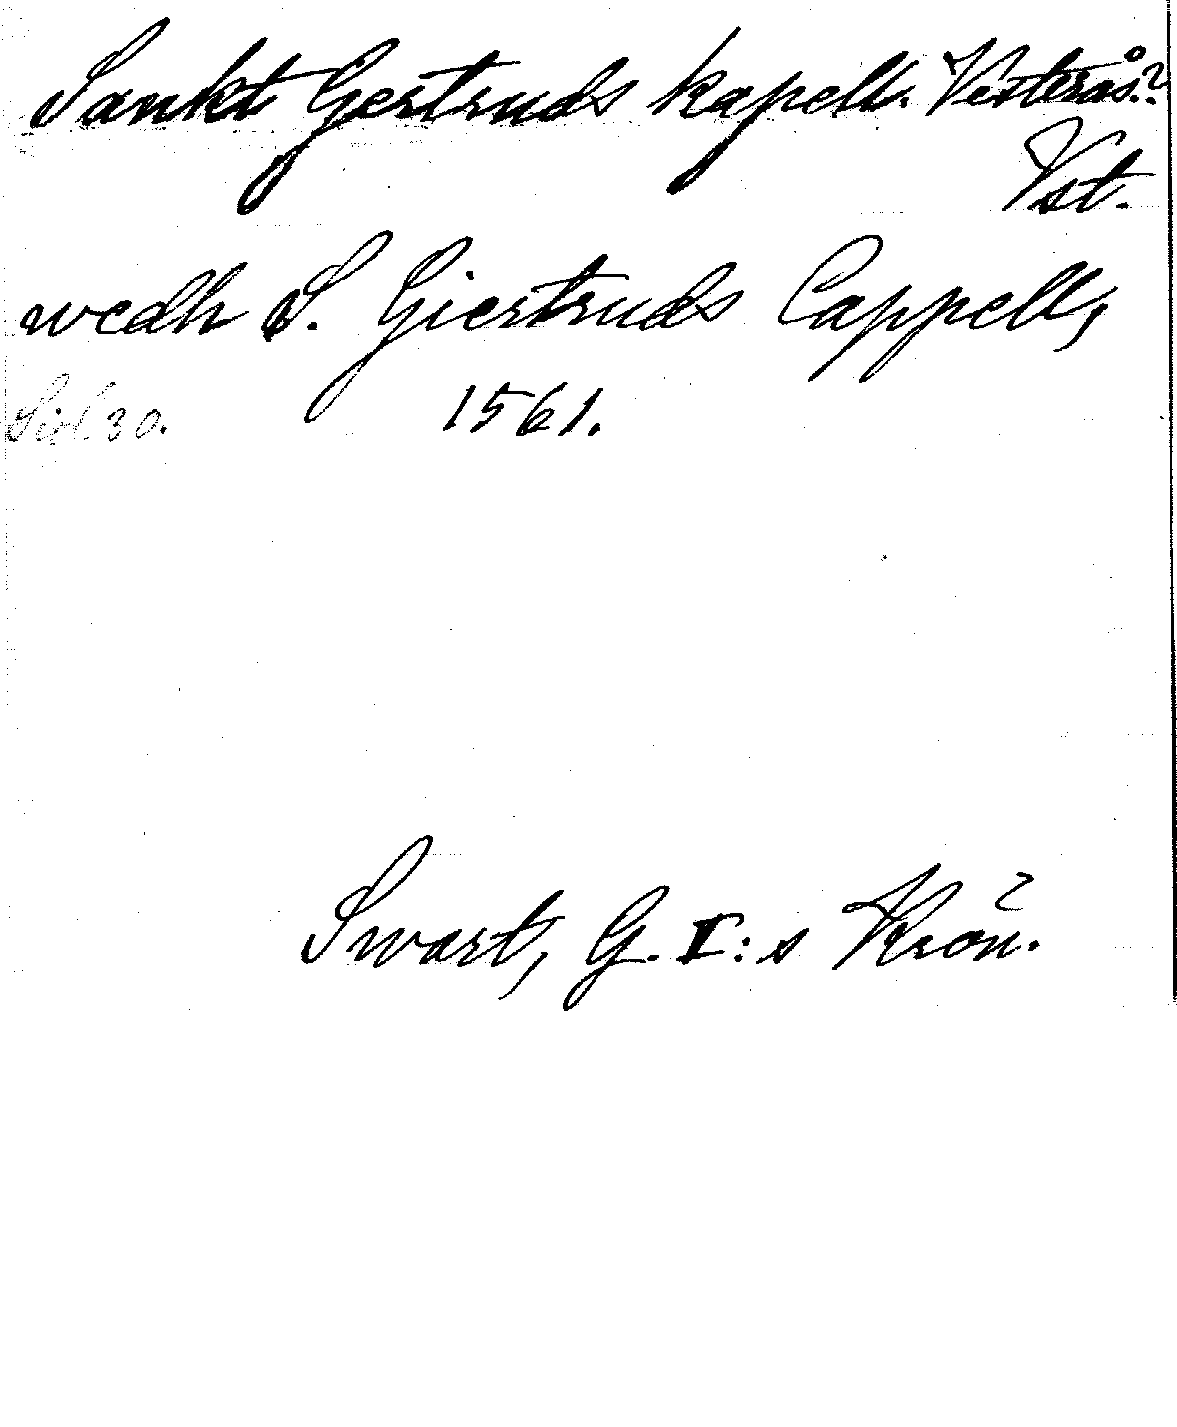 Sankt Gertruds kapell. Vesterås?
Vst.
wedh S. Giertruds Cappell,
Sid. 30. 1561.
Swart, G. I:s Krön.